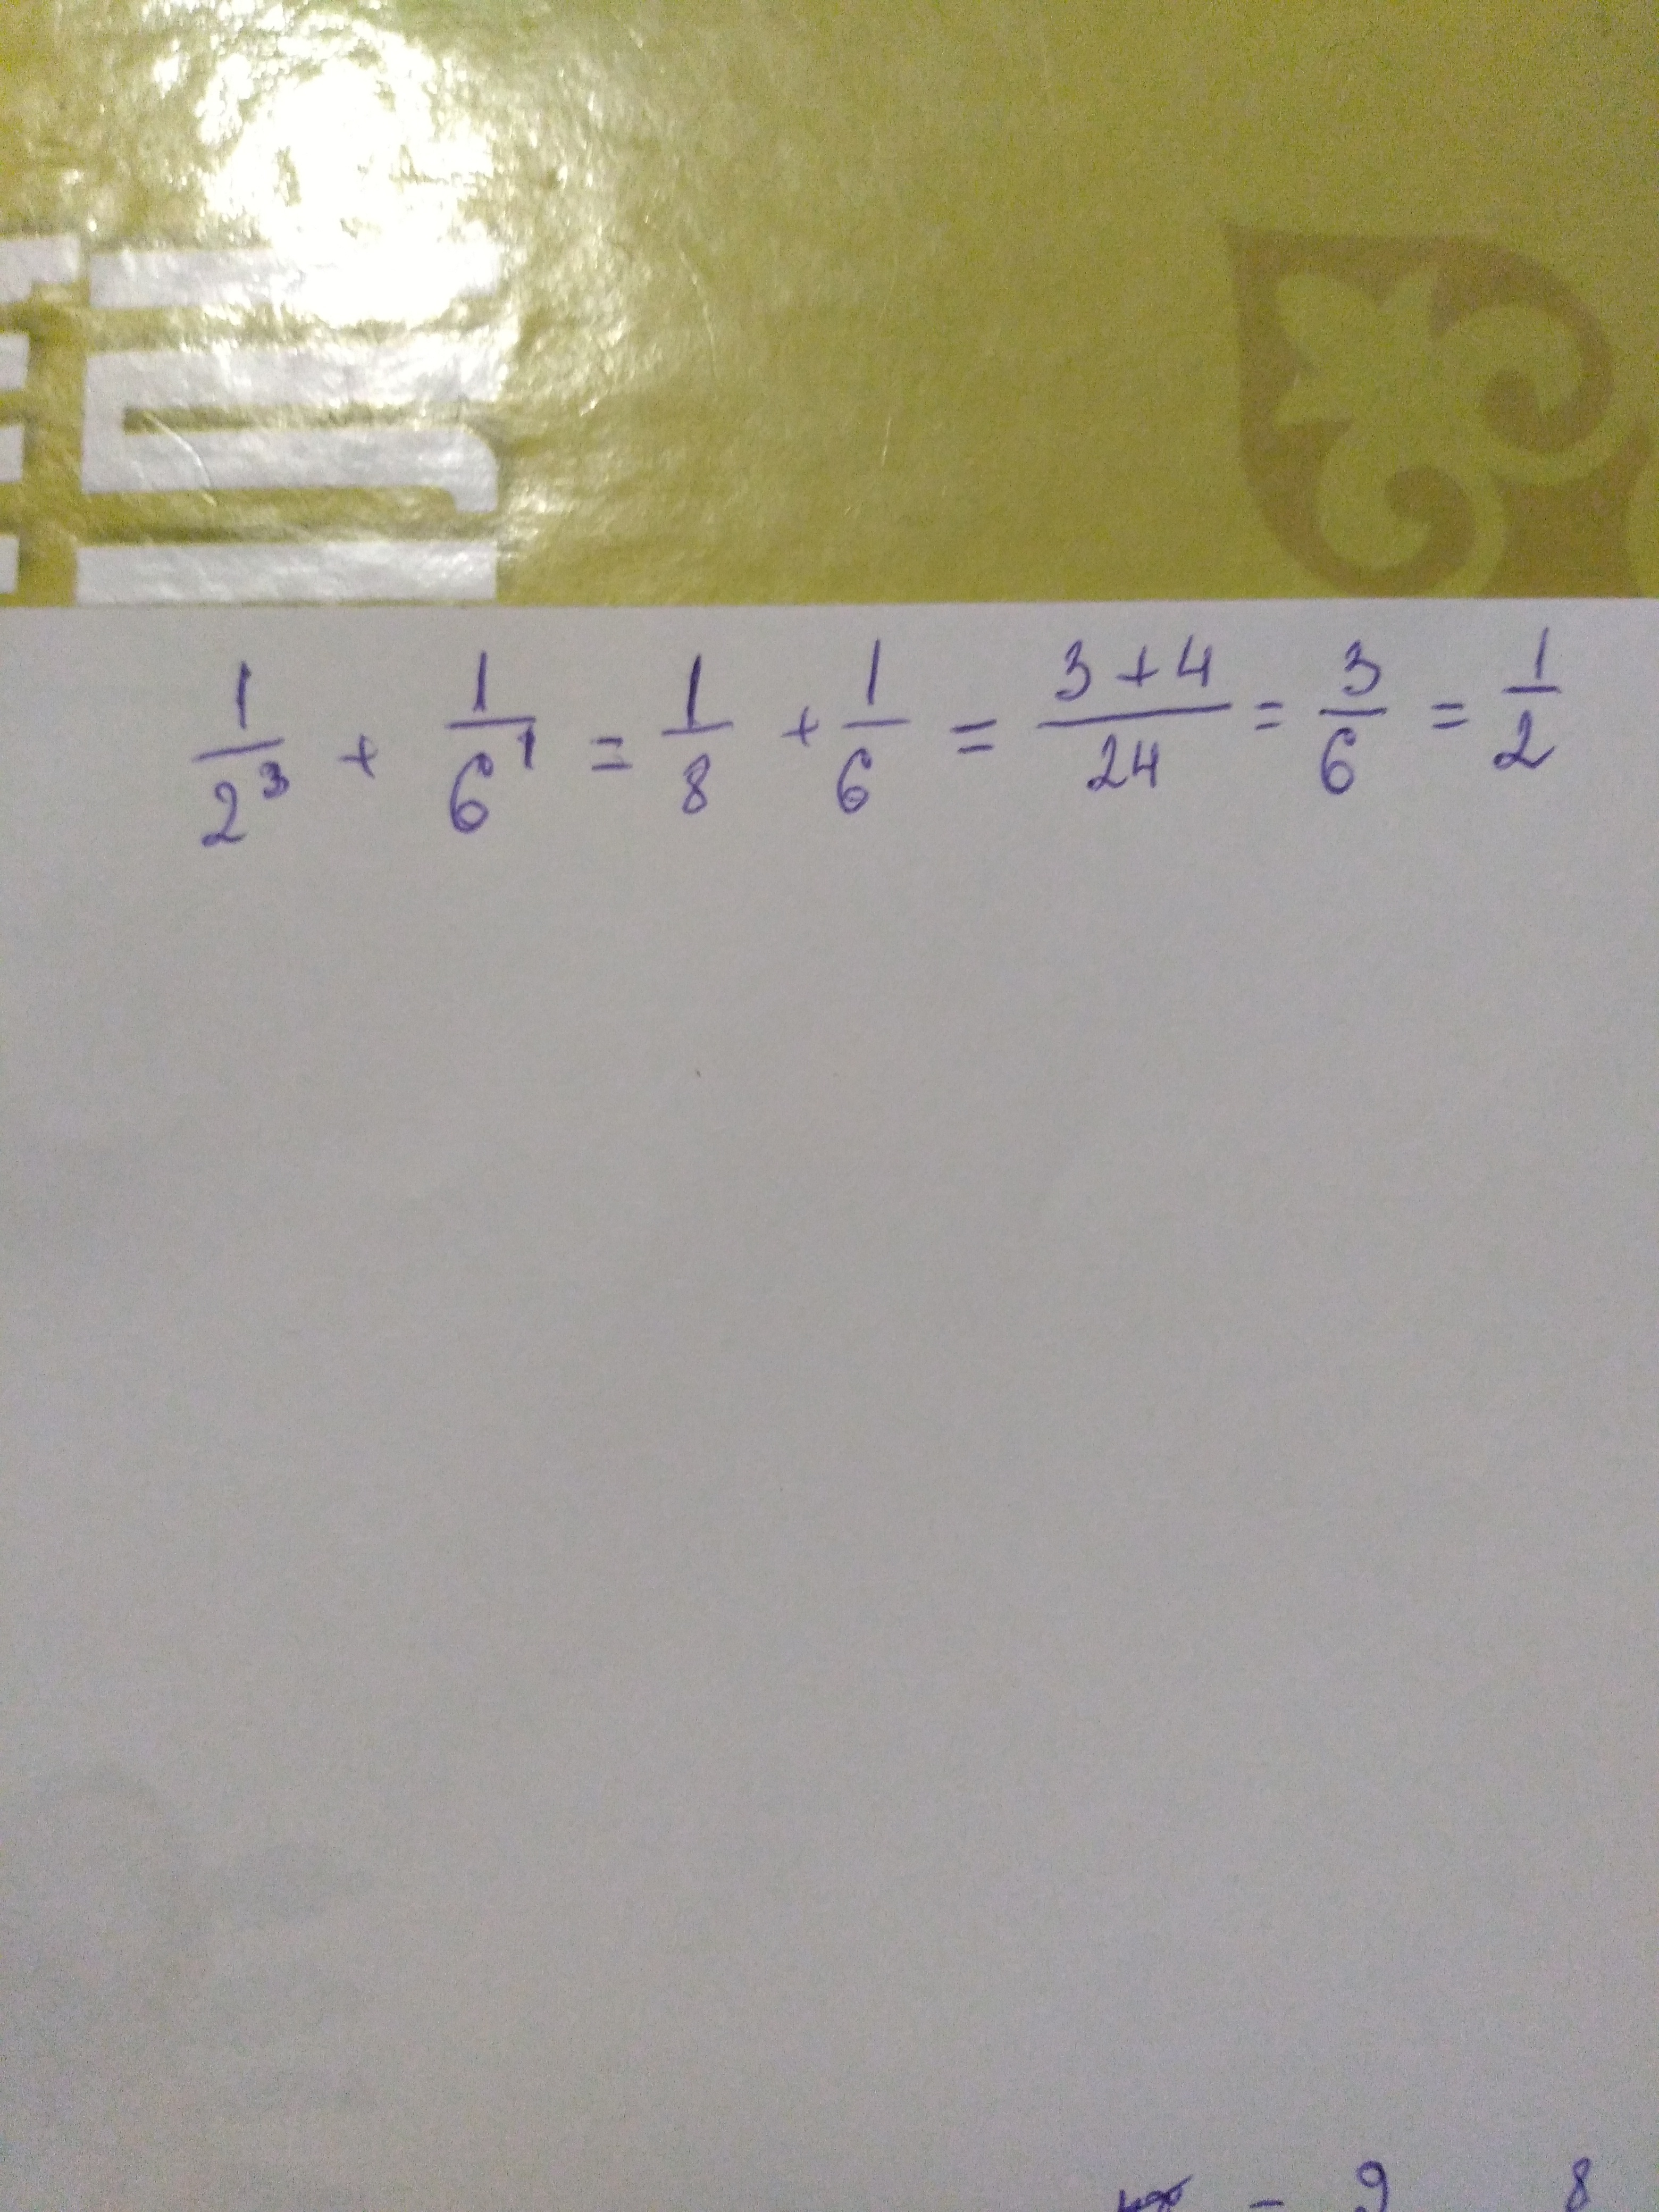 1/2³ + 1/6¹ = 1/8 + 1/6 = (3+4)/24 = 3/6 = 1/2
= 9 8